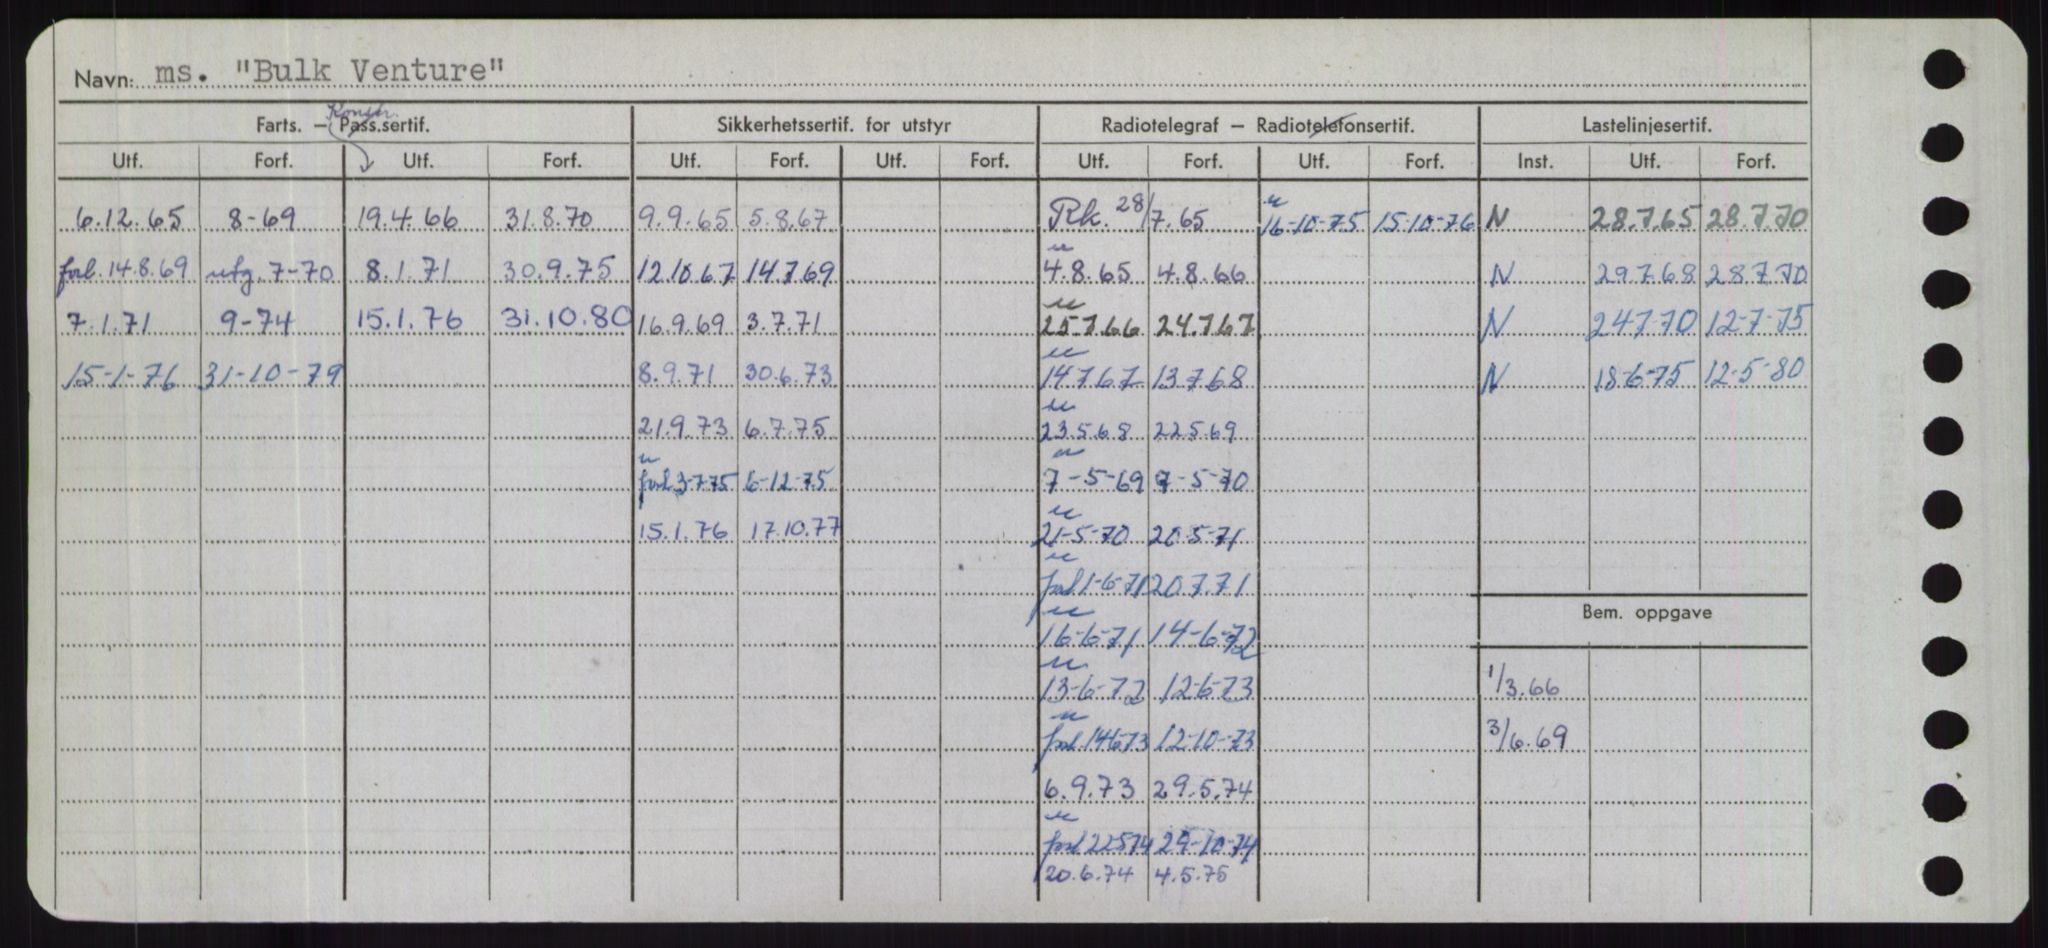 Navn: ms. "Bulk Venture"
Konstr.
Farts. — Pass.sertif. Sikkerhetssertif. for utstyr Radiotelegraf — Radiotelefonsertif. Lastelinjesertif.
Utf. Forf. Utf. Forf. Utf. Forf. Utf. Forf. Utf. Forf. Utf. Forf. Inst. Utf. Forf.
6.12.65 8-69 19.4.66 31.8.70 9.9.65 5.8.67 Rk. 28/7.65 16-10-75 15-10-76 N 28.7.65 28.7.70
forl. 14.8.69 utg. 7-70 8.1.71 30.9.75 12.10.67 14.7.69 4.8.65 4.8.66 N 29.7.68 28.7.70
7.1.71 9-74 15.1.76 31.10.80 16.9.69 3.7.71 25.7.66 24.7.67 N 24.7.70 12-7-75
15-1-76 31-10-79 8.9.71 30.6.73 14.7.67 13.7.68 N 18-6-75 12-5-80
21.9.73 6.7.75 23.5.68 22.5.69
forl. 3-7-75 6-12-75 7-5-69 7-5-70
15.1.76 17.10.77 21-5-70 20-5-71
forl 1-6-71 20.7.71
Bem. oppgave
16-6-71 14-6-72
13-6-72 12-6-73 1/3.66
forl. 14673 12-10-73 3/6.69
6.9.73 29.5.74
forl 22574 29-10-74
20.6.74 4.5.75